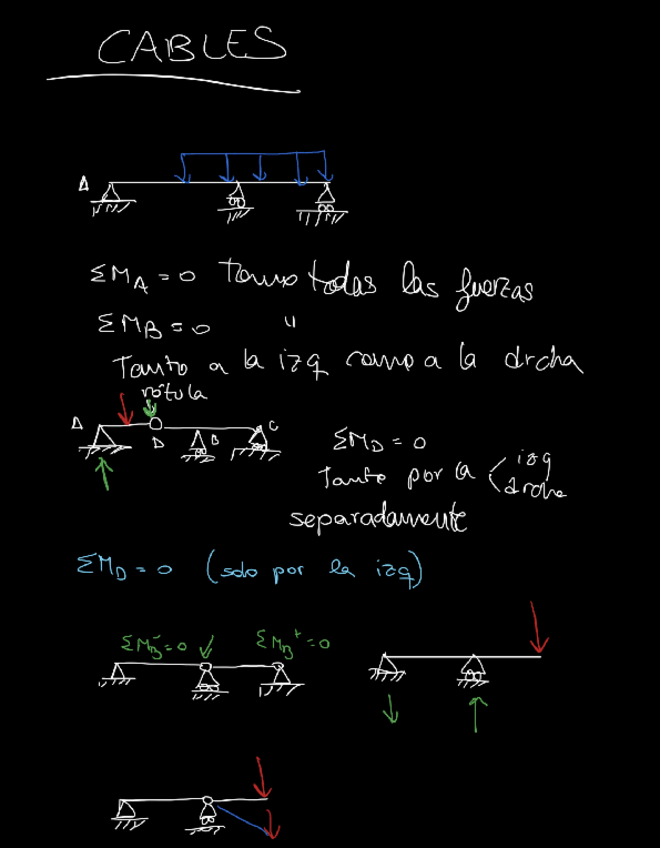 CABLES
A
ΣM_A = 0 Tomo todas las fuerzas
ΣM_B = 0 "
Tanto a la izq como a la drcha
rótula
A D B C
ΣM_D = 0
Tanto por la < izq
drcha
separadamente
ΣM_D = 0 (solo por la izq)
ΣM_B^- = 0 ΣM_B^+ = 0